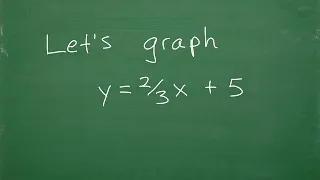 Let's graph
y = 2/3 x + 5